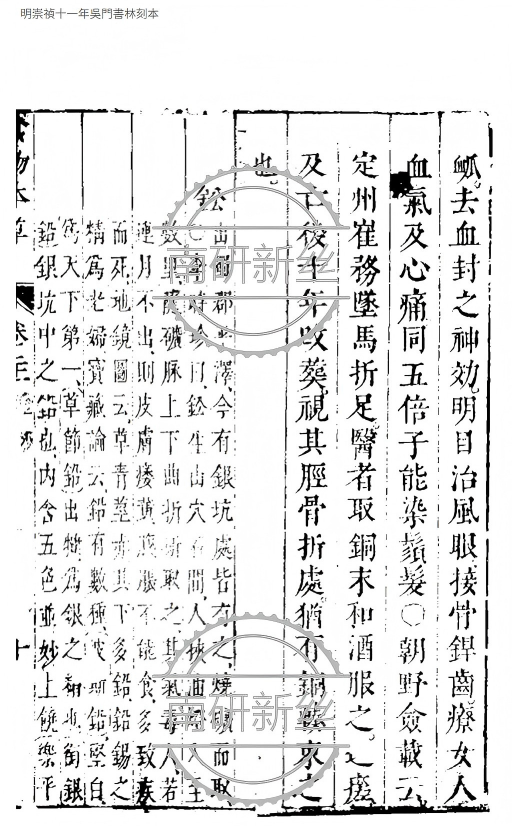 明崇禎十一年吳門書林刻本
衂去血封之神効明目治風眼接骨銲齒療女人
血氣及心痛同五倍子能染鬚髮〇朝野僉載云
定州崔務墜馬折足醫者取銅末和酒服之遂瘥
及亡後十年改葬視其脛骨折處猶有銅束之
也
鉛
出蜀郡平澤今有銀坑處皆有之燒礦而取
曰鉛生山穴石間人挾油燈入至
數里隨礦脉上下曲折斫取之其氣毒人若
連月不出則皮膚痿黃腹脹不能食多致疾
而死地鏡圖云草青莖赤其下多鉛鉛錫之
精為老婦寶藏論云鉛有數種波斯鉛堅白
為天下第一草節鉛出犍為銀之精也銜銀
鉛銀坑中之鉛也內含五色並妙上饒樂平
食物本草
卷之三
十
南研新丝
南研新丝